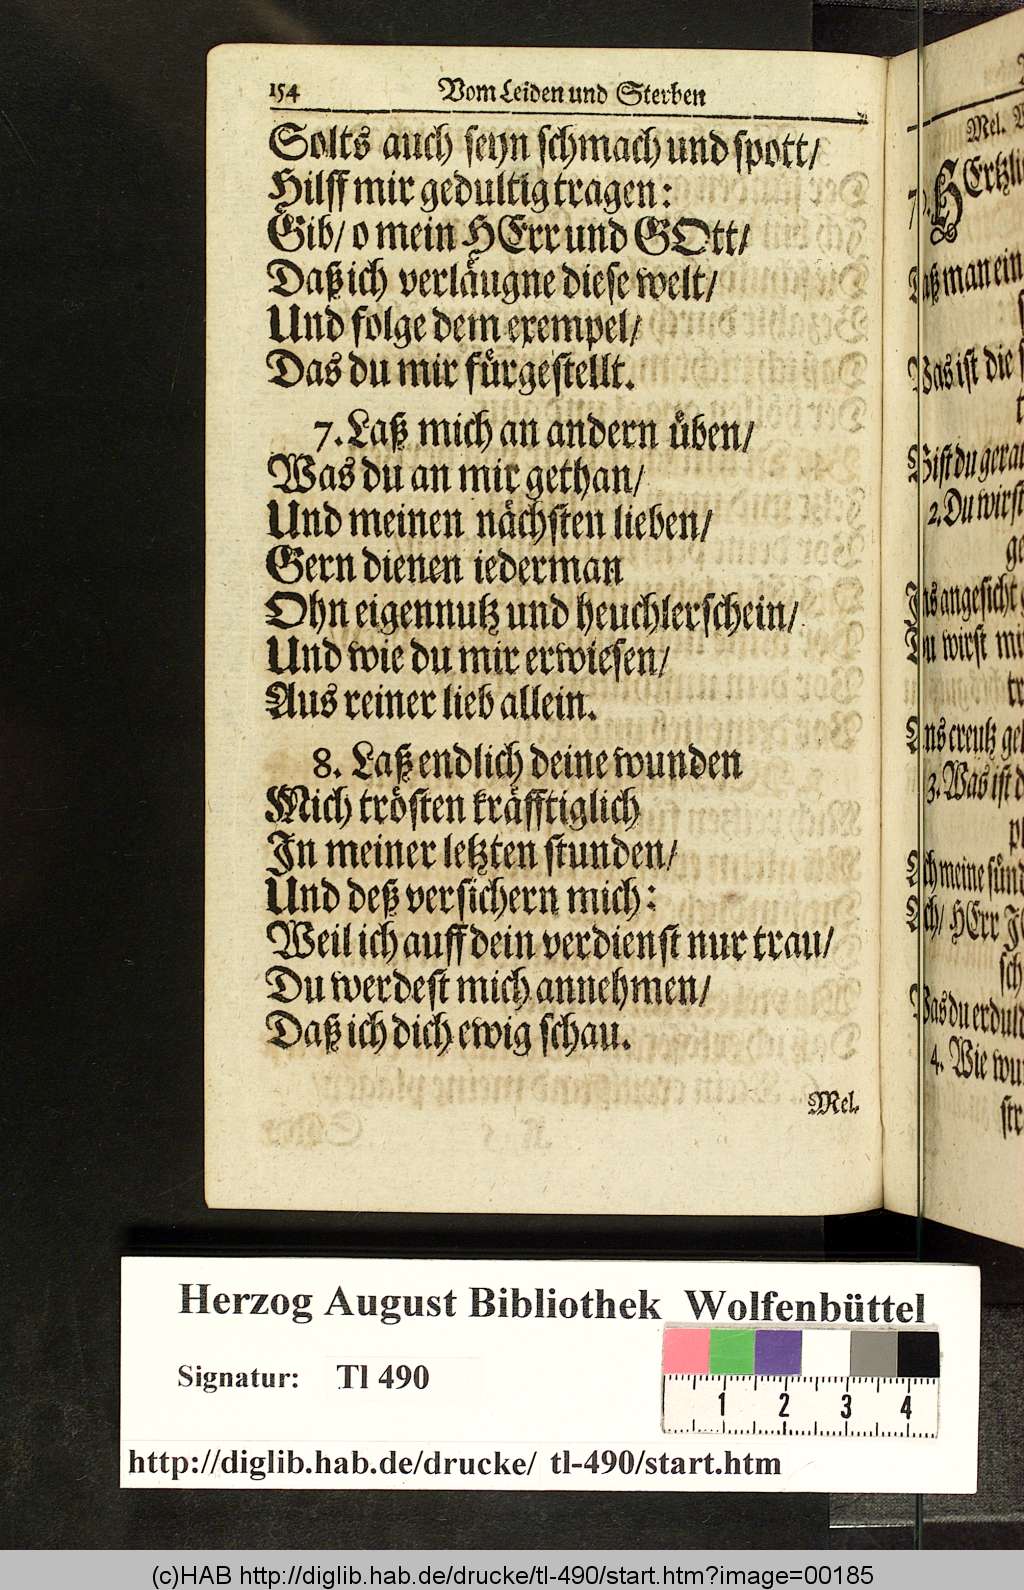 154 Vom Leiden und Sterben
Solts auch seyn schmach und spott/
Hilff mir gedultig tragen:
Gib/ o mein HErr und GOtt/
Daß ich verläugne diese welt/
Und folge dem exempel/
Das du mir fürgestellt.
7. Laß mich an andern üben/
Was du an mir gethan/
Und meinen nächsten lieben/
Gern dienen iederman
Ohn eigennutz und heuchlerschein/
Und wie du mir erwiesen/
Aus reiner lieb allein.
8. Laß endlich deine wunden
Mich trösten kräfftiglich
In meiner letzten stunden/
Und deß versichern mich:
Weil ich auff dein verdienst nur trau/
Du werdest mich annehmen/
Daß ich dich ewig schau.
Mel.
Mel.
HErtzli
Daß man ein
Was ist die
Bist du gera
2. Du wirst
ge
Ins angesicht
Du wirst mi
tr
Ans creutz ge
3. Was ist d
Ach meine sünd
Ach/ HErr J
sch
Was du erduld
4. Wie wu
str
Herzog August Bibliothek Wolfenbüttel
Signatur: Tl 490
1 2 3 4
http://diglib.hab.de/drucke/ tl-490/start.htm
(c)HAB http://diglib.hab.de/drucke/tl-490/start.htm?image=00185